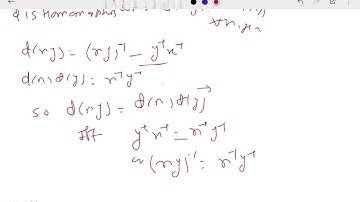 d is Homomorphism
d(xy) = (xy)⁻¹ = y⁻¹x⁻¹
d(x) d(y) = x⁻¹y⁻¹
so d(xy) = d(x) d(y)
iff y⁻¹x⁻¹ = x⁻¹y⁻¹
(xy)⁻¹ = x⁻¹y⁻¹